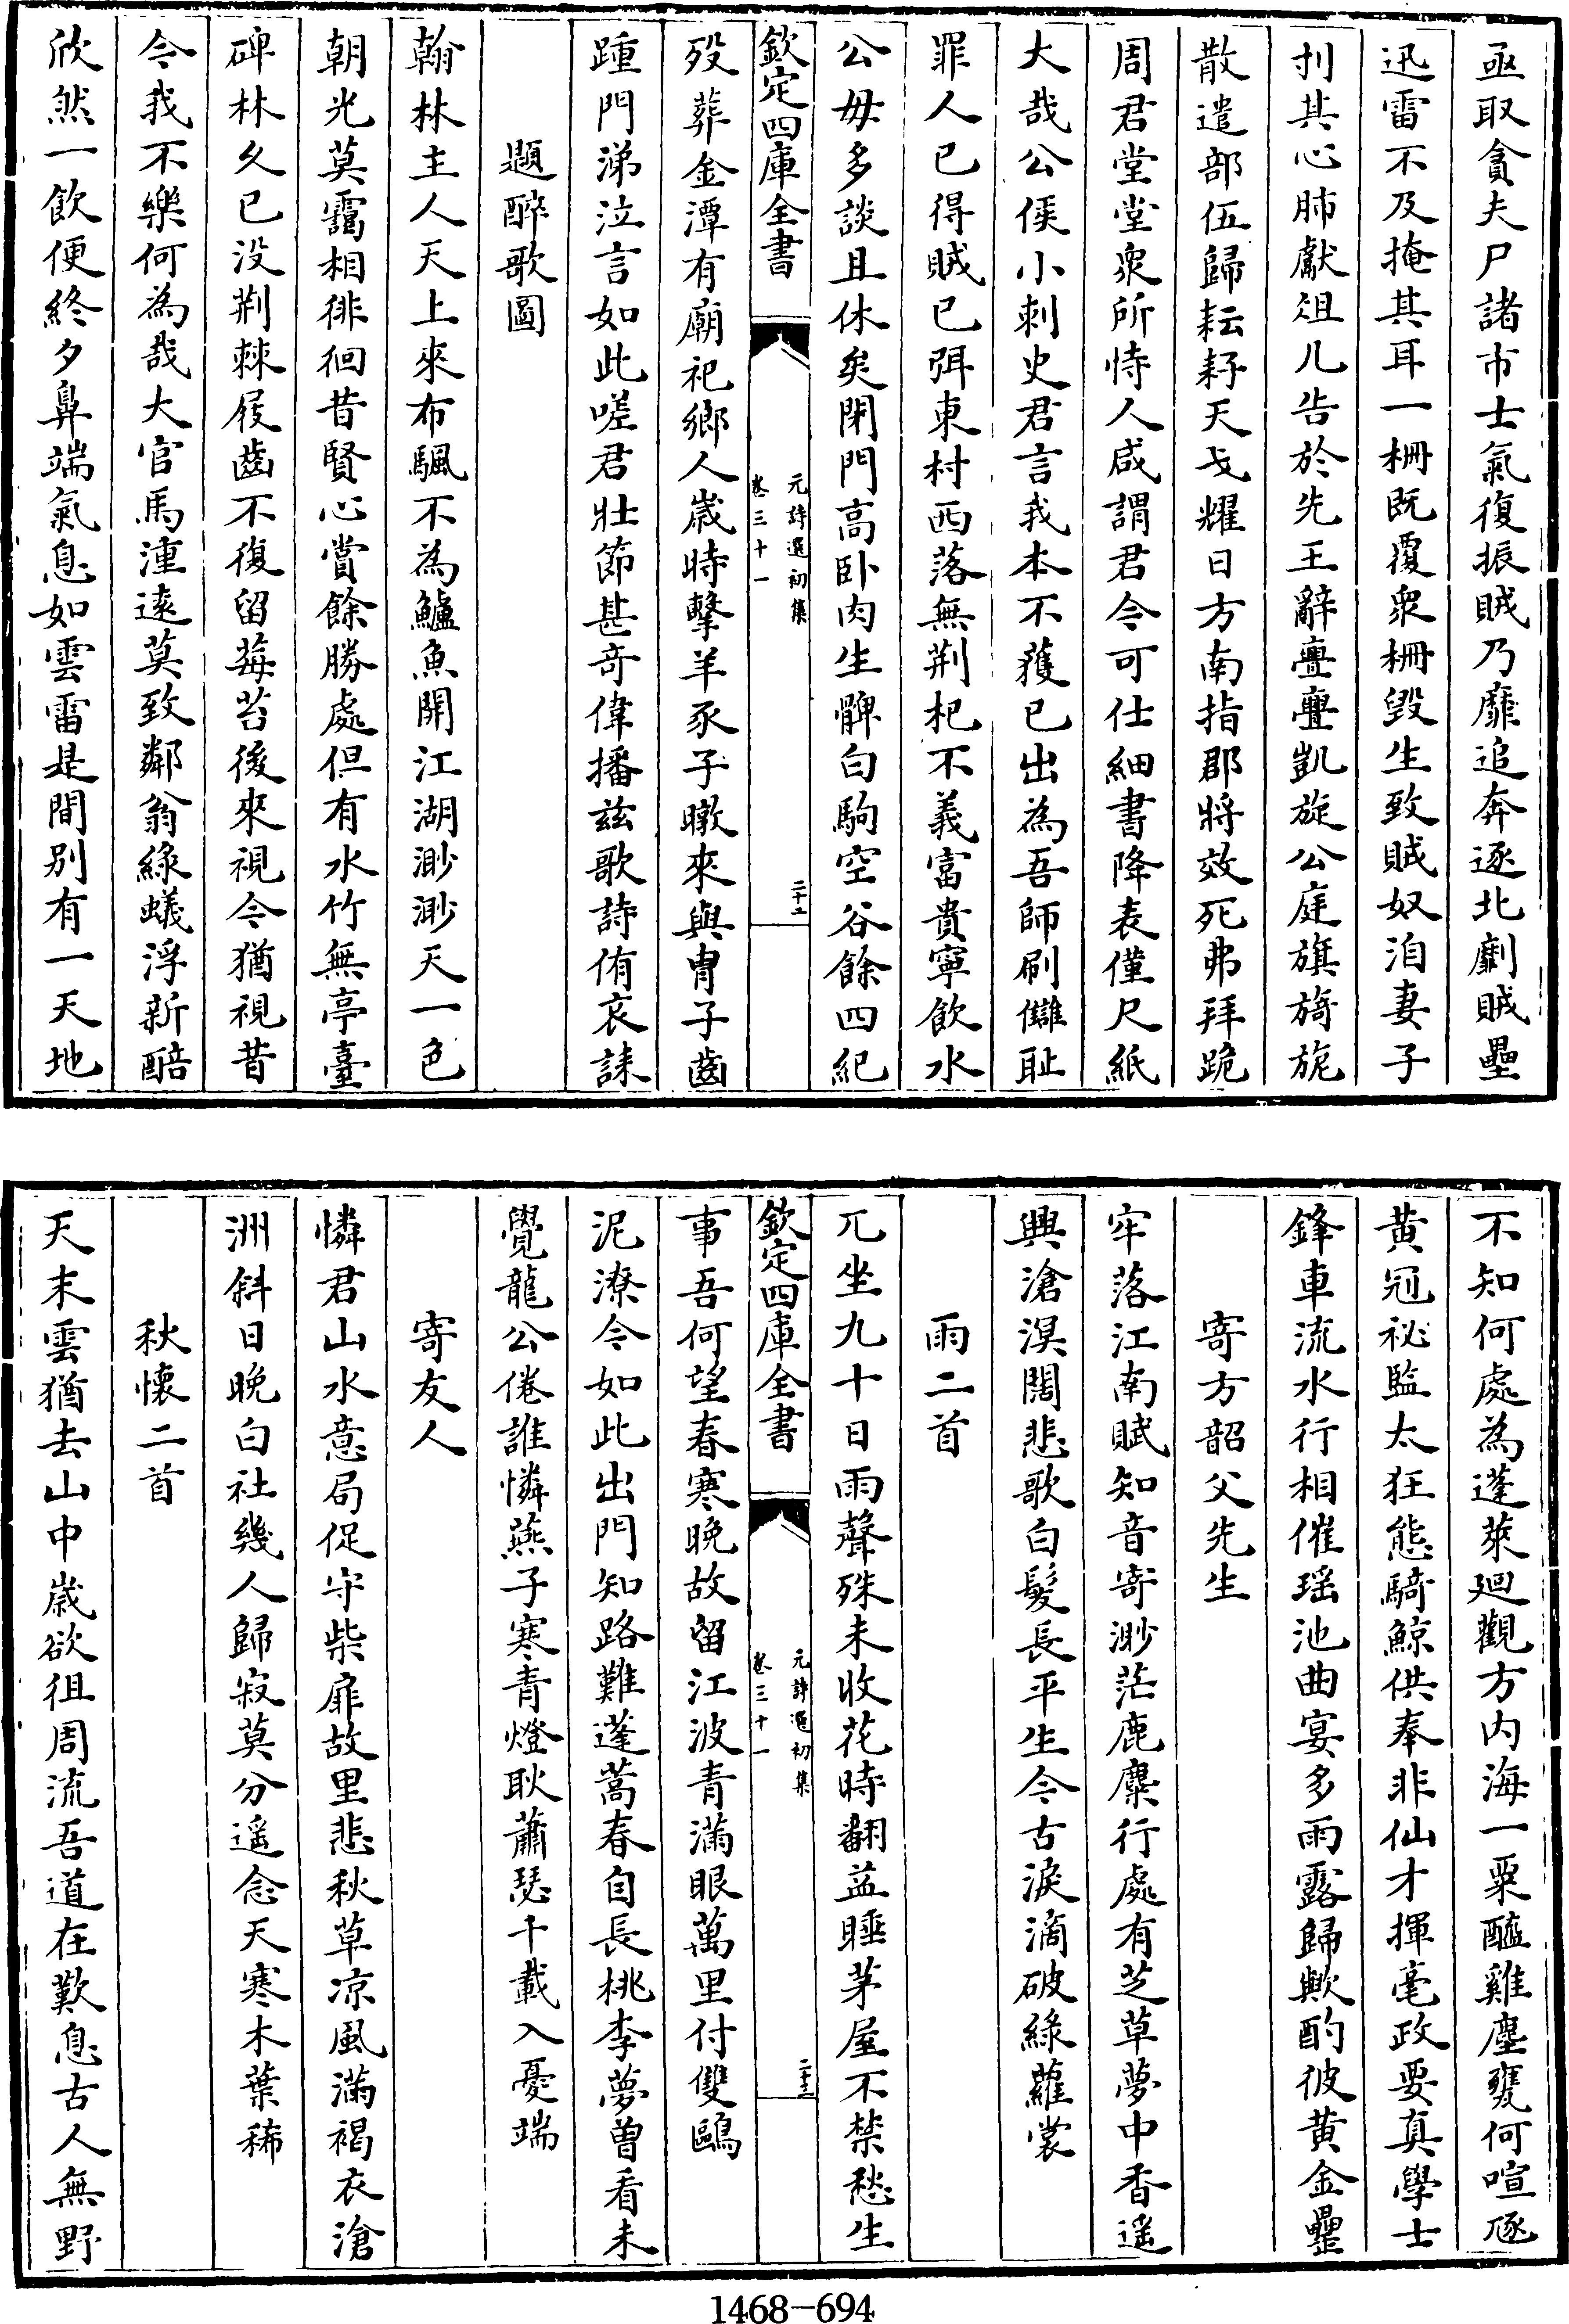 亟取貪夫尸諸市士氣復振賊乃靡追奔逐北劘賊壘
迅雷不及掩其耳一柵既覆衆柵毀生致賊奴洎妻子
刋其心肺獻俎几告於先王辭亹亹凱旋公庭旗旖旎
散遣部伍歸耘耔天戈耀日方南指郡將效死弗拜跪
周君堂堂衆所恃人咸謂君今可仕細書降表僅尺紙
大哉公侯小刺史君言我本不獲已出為吾師刷讎恥
罪人已得賊已弭東村西落無荆杞不義富貴寧飲水
公毋多談且休矣閉門高卧肉生髀白駒空谷餘四紀
欽定四庫全書
元詩選初集
卷三十一
二十二
歿葬金潭有廟祀鄉人歲時擊羊豕子暾來與胄子齒
踵門涕泣言如此嗟君壯節甚奇偉播兹歌詩侑哀誄
題醉歌圖
翰林主人天上來布颿不為鱸魚開江湖渺渺天一色
朝光莫靄相徘徊昔賢心賞餘勝處但有水竹無亭臺
碑林久已没荆棘屐齒不復留莓苔後來視今猶視昔
今我不樂何為哉大官馬湩遠莫致鄰翁緑蟻浮新醅
欣然一飲便終夕鼻端氣息如雲雷是間别有一天地
不知何處為蓬萊廻觀方内海一粟醯雞塵甕何喧豗
黄冠祕監太狂態騎鯨供奉非仙才揮毫政要真學士
鋒車流水行相催瑶池曲宴多雨露歸歟酌彼黄金罍
寄方韶父先生
牢落江南賦知音寄渺茫鹿麋行處有芝草夢中香遥
興滄溟闊悲歌白髮長平生今古淚滴破緑蘿裳
雨二首
兀坐九十日雨聲殊未收花時翻益睡茅屋不禁愁生
欽定四庫全書
元詩選初集
卷三十一
二十三
事吾何望春寒晚故留江波青滿眼萬里付雙鷗
泥潦今如此出門知路難蓬蒿春自長桃李夢曾看未
覺龍公倦誰憐燕子寒青燈耿蕭瑟千載入憂端
寄友人
憐君山水意局促守柴扉故里悲秋草凉風滿褐衣滄
洲斜日晚白社幾人歸寂莫分遥念天寒木葉稀
秋懷二首
天末雲猶去山中歲欲徂周流吾道在歎息古人無野
1468-694